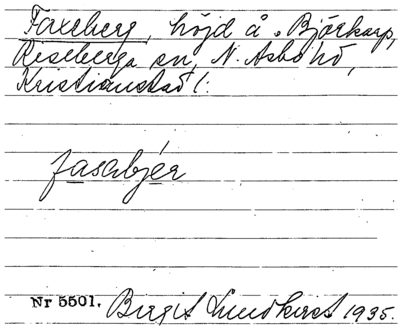 Faxeberg, höjd å Björkarp,
Riseberga sn, N. Åsbo hd,
Kristianstad l.
fasabjér
Nr 5501. Birgit Lundkvist 1935.